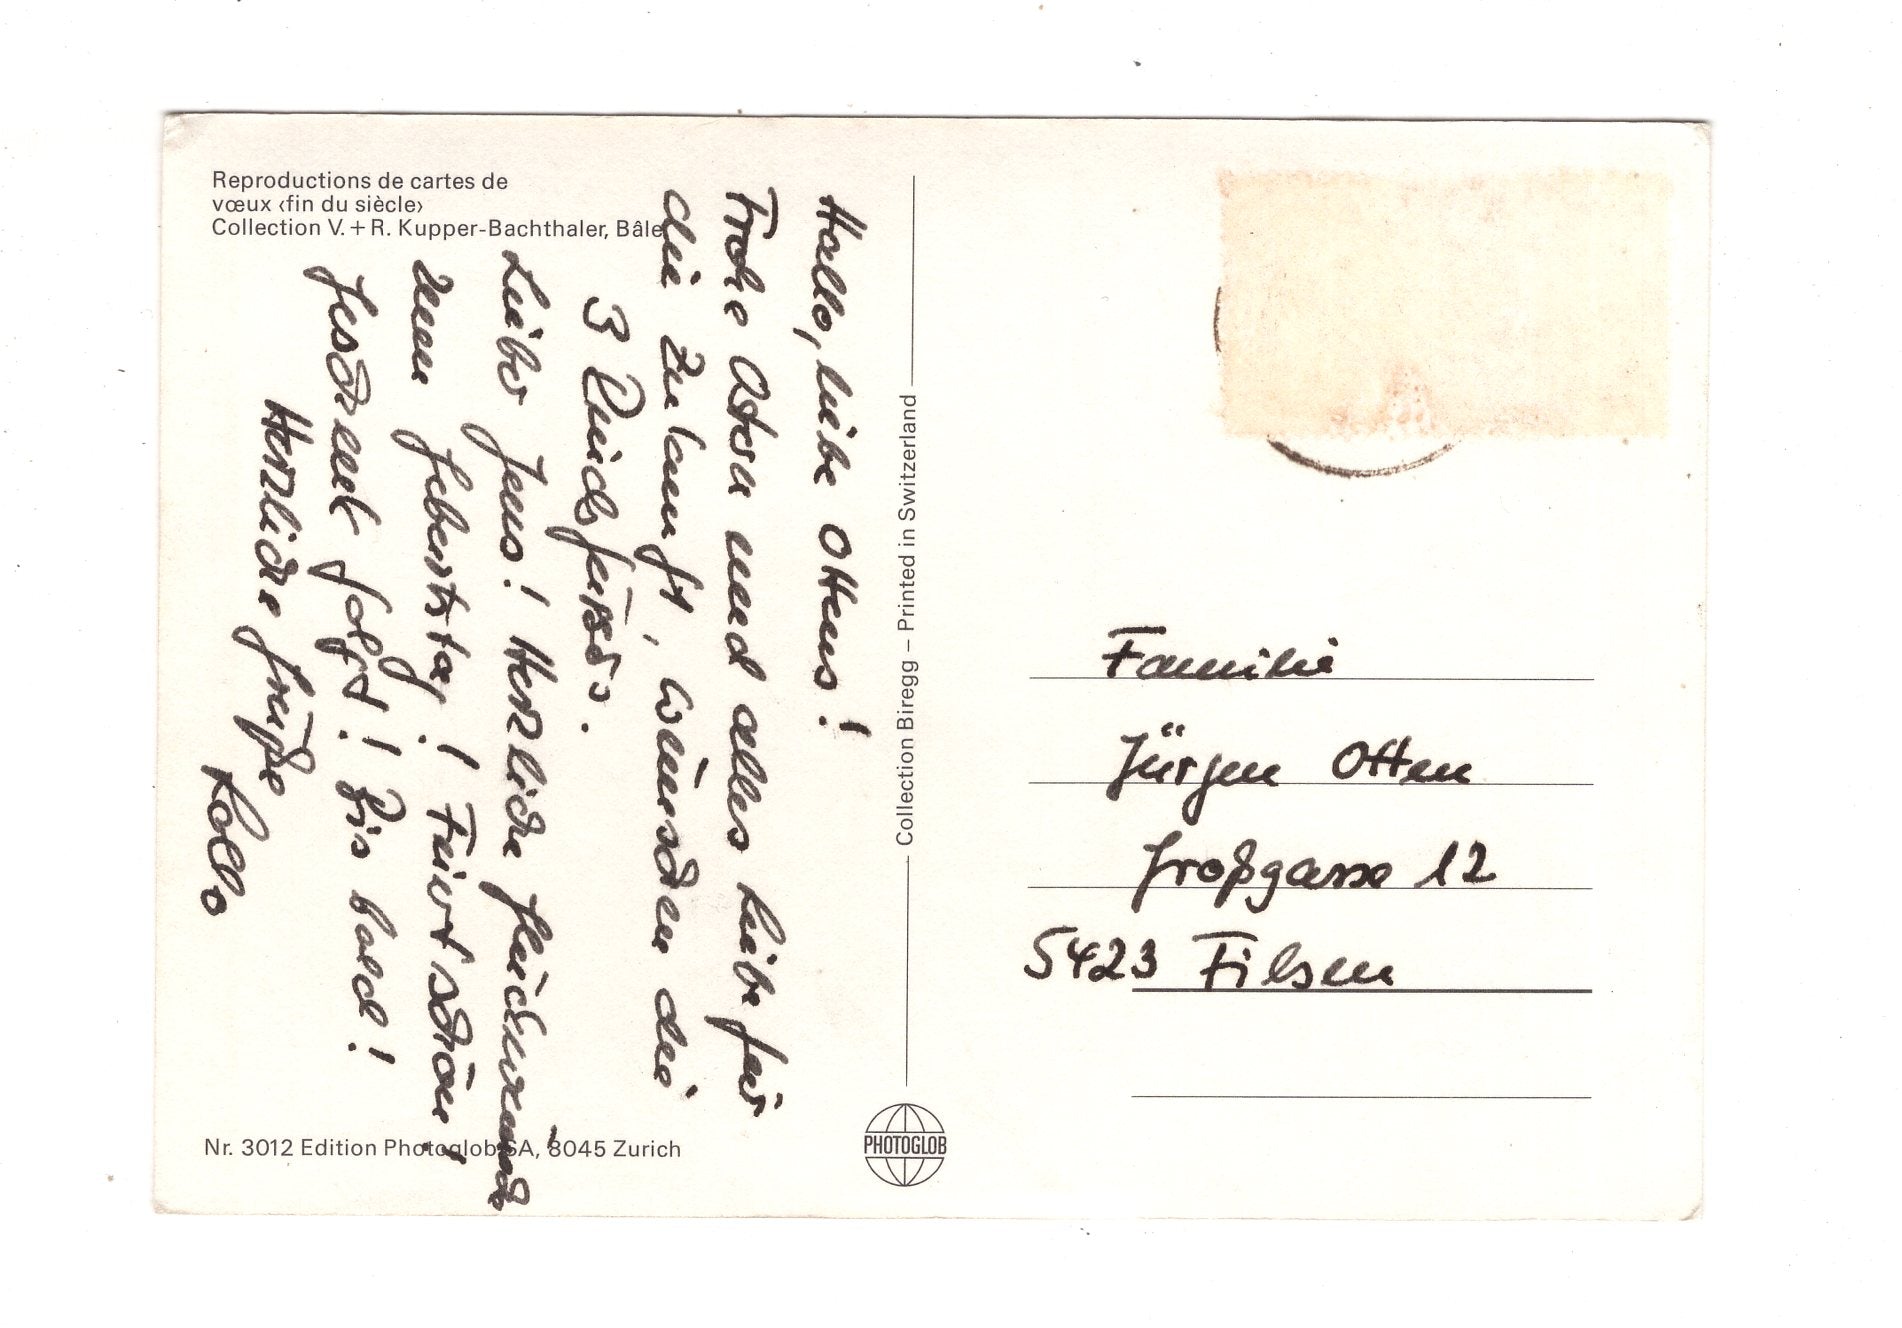 Reproductions de cartes de
vœux ‹fin du siècle›
Collection V. + R. Kupper-Bachthaler, Bâle
Hallo, liebe Ottens!
Frohe Ostern und alles Liebe für
die Zukunft, wünschen die
3
Lieber Jens! Herzliche Glückwünsche
zum Geburtstag! Feiert schön!
Geschenk folgt! Bis bald!
Herzliche Grüße
Nr. 3012 Edition Photoglob SA, 8045 Zurich
Collection Biregg – Printed in Switzerland
PHOTOGLOB
Familie
Jürgen Otten
Großgasse 12
5423 Filsen